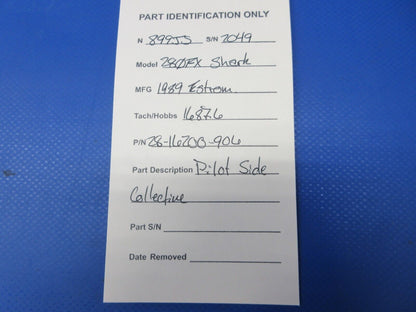 PART IDENTIFICATION ONLY
N 899JJ S/N 2049
Model 280FX Shark
MFG 1989 Estrom
Tach/Hobbs 1687.6
P/N 28-16200-906
Part Description Pilot Side
Collective
Part S/N
Date Removed